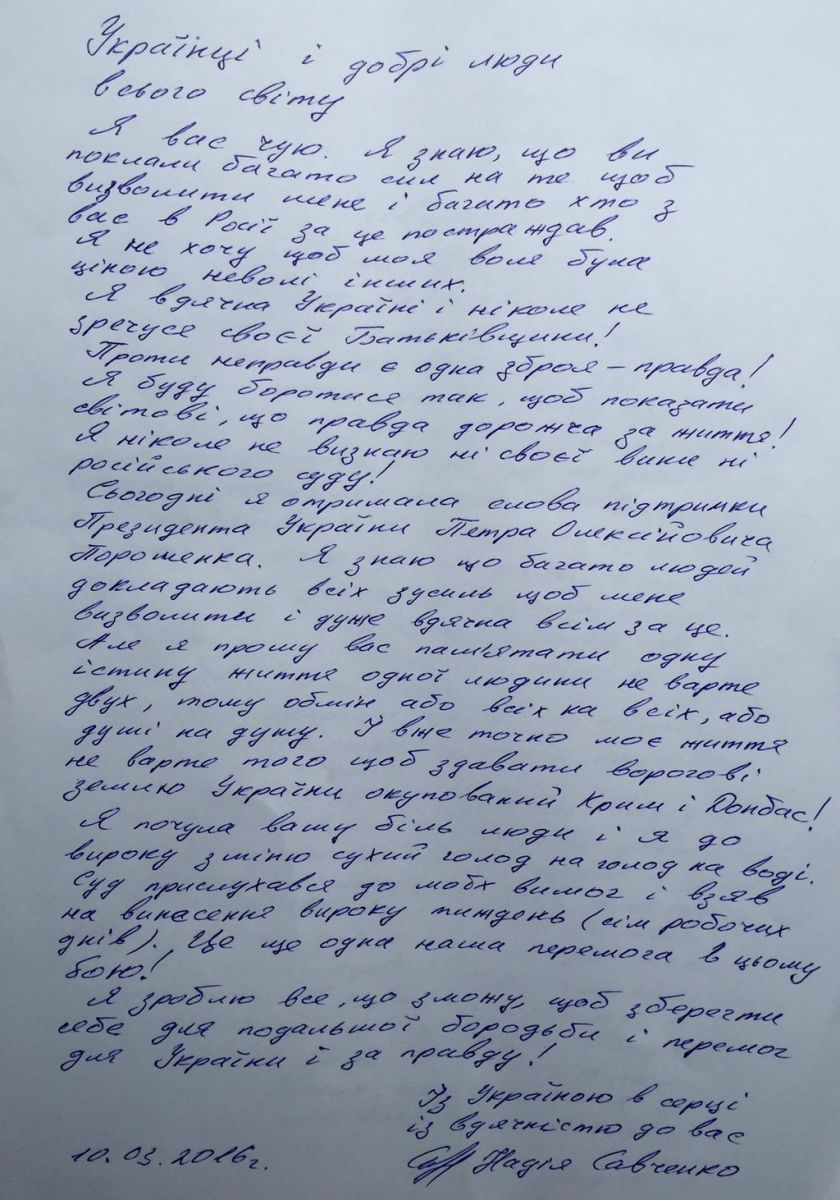 Українці і добрі люди
всього світу
Я вас чую. Я знаю, що ви
поклали багато сил на те щоб
визволити мене і багато хто з
вас в Росії за це постраждав.
Я не хочу щоб моя воля була
ціною неволі інших.
Я вдячна Україні і ніколе не
зречусе своєї Батьківщини!
Проти неправди є одна зброя – правда!
Я буду боротисе так, щоб показати
світові, що правда дорожча за життя!
Я ніколе не визнаю ні своєї вини ні
російського суду!
Сьогодні я отримала слова підтримки
Президента України Петра Олексійовича
Пороменка. Я знаю що багато людей
докладають всіх зусиль щоб мене
визволити і дуже вдячна всім за це.
Але я прошу вас пам'ятати одну
істину життя одної людини не варте
двух, тому обмін або всіх на всіх, або
душі на душу. І вже точно моє життя
не варте того щоб здавати ворогові
землю України окупований Крим і Донбас!
Я почула вашу біль люди і я до
вироку зміню сухий голод на голод на воді.
Суд прислухався до моїх вимог і взяв
на винесення вироку тиждень (сім робочих
днів). Це ще одна наша перемога в цьому
бою!
Я зроблю все, що зможу, щоб зберегти
себе для подальшої бородьби і перемог
для України і за правду!
Із Україною в серці
із вдячністю до вас
10.03.2016г. Надія Савченко